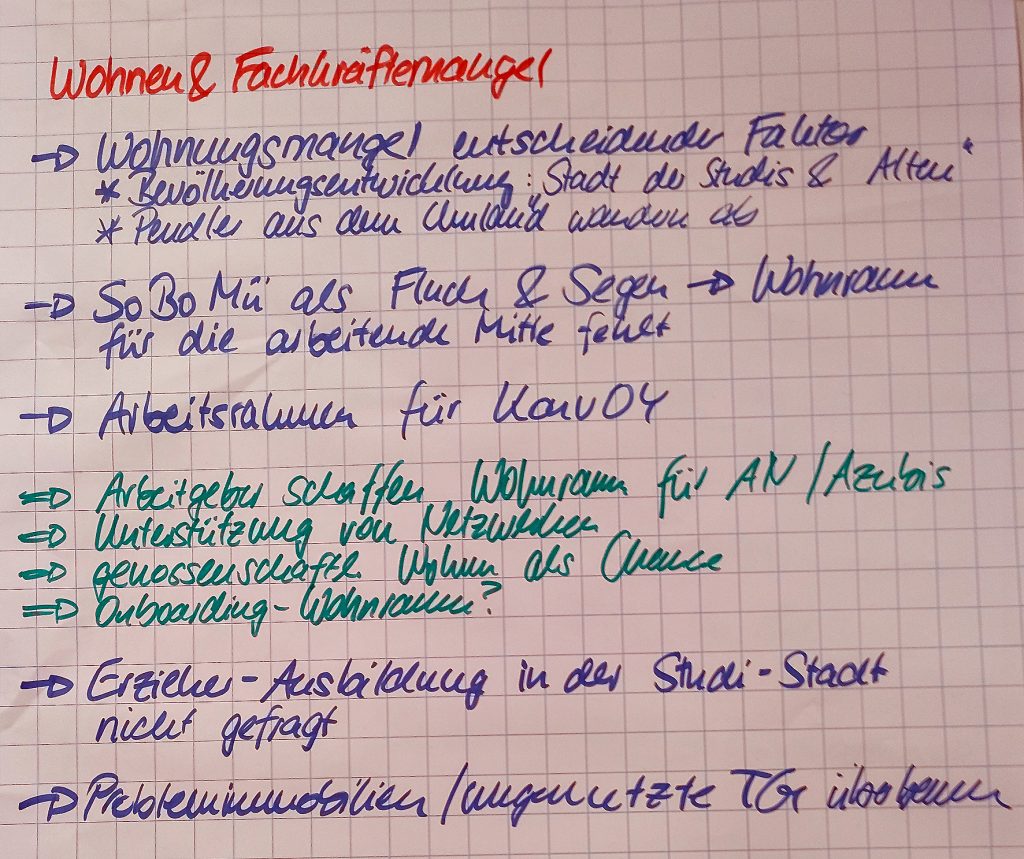 Wohnen & Fachkräftemangel
→ Wohnungsmangel entscheidender Faktor
* Bevölkerungsentwicklung: "Stadt der Studis & Alten"
* Pendler aus dem Umland wandern ab
→ SoBoMü als Fluch & Segen → Wohnraum
für die arbeitende Mitte fehlt
→ Arbeitsrahmen für KonvOY
⇒ Arbeitgeber schaffen Wohnraum für AN / Azubis
⇒ Unterstützung von Netzwerken
⇒ genossenschaftl. Wohnen als Chance
⇒ Onboarding-Wohnraum?
→ Erzieher-Ausbildung in der Studi-Stadt
nicht gefragt
→ Problemimmobilien / ungenutzte TG überbauen